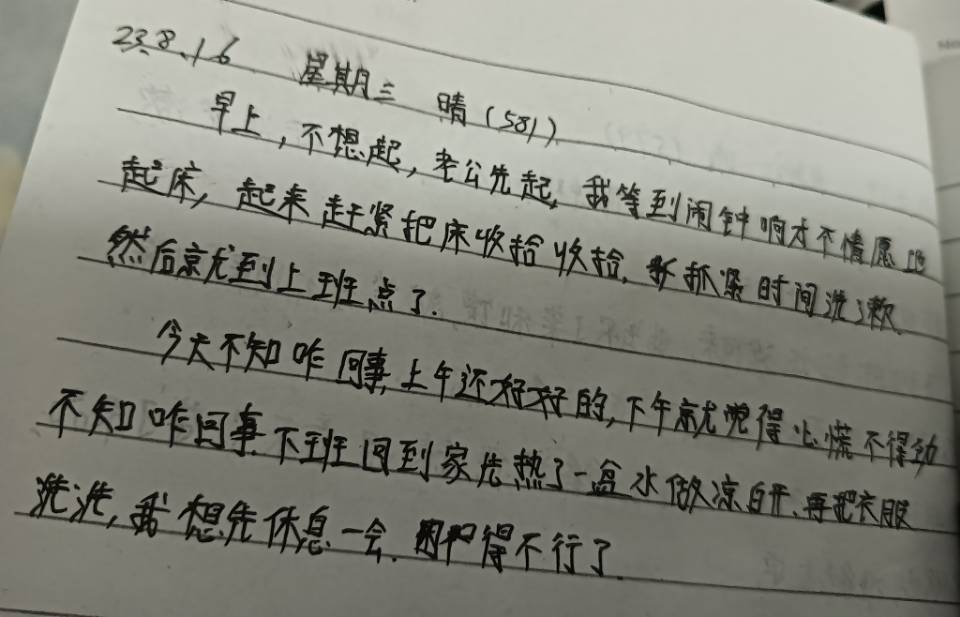 23.8.16 星期三 晴(581)
早上,不想起,老公先起,我等到闹钟响才不情愿地
起床,起来赶紧把床收拾收拾,抓紧时间洗漱
然后就到上班点了.
今天不知咋回事,上午还好好的,下午就觉得心慌不得劲
不知咋回事.下班回到家先热了一盆水做凉白开.再把衣服
洗洗,我想先休息一会.困得不行了.